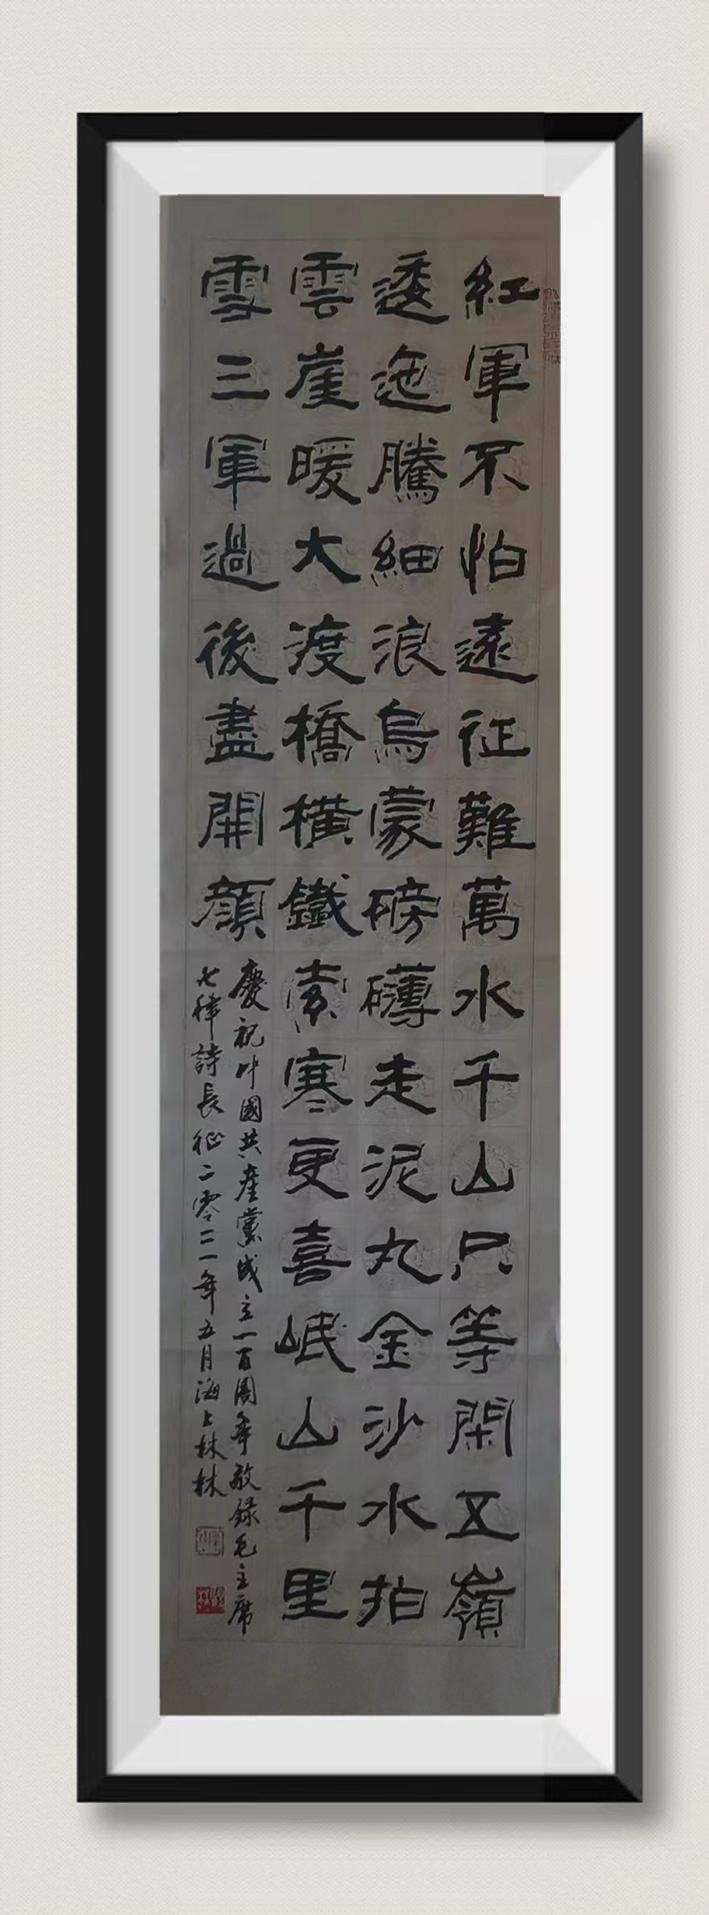 紅軍不怕遠征難萬水千山只等閑五嶺
逶迤騰細浪烏蒙磅礴走泥丸金沙水拍
雲崖暖大渡橋橫鐵索寒更喜岷山千里
雪三軍過後盡開顏
慶祝中國共產黨成立一百周年敬録毛主席
七律詩長征二零二一年五月海上林林